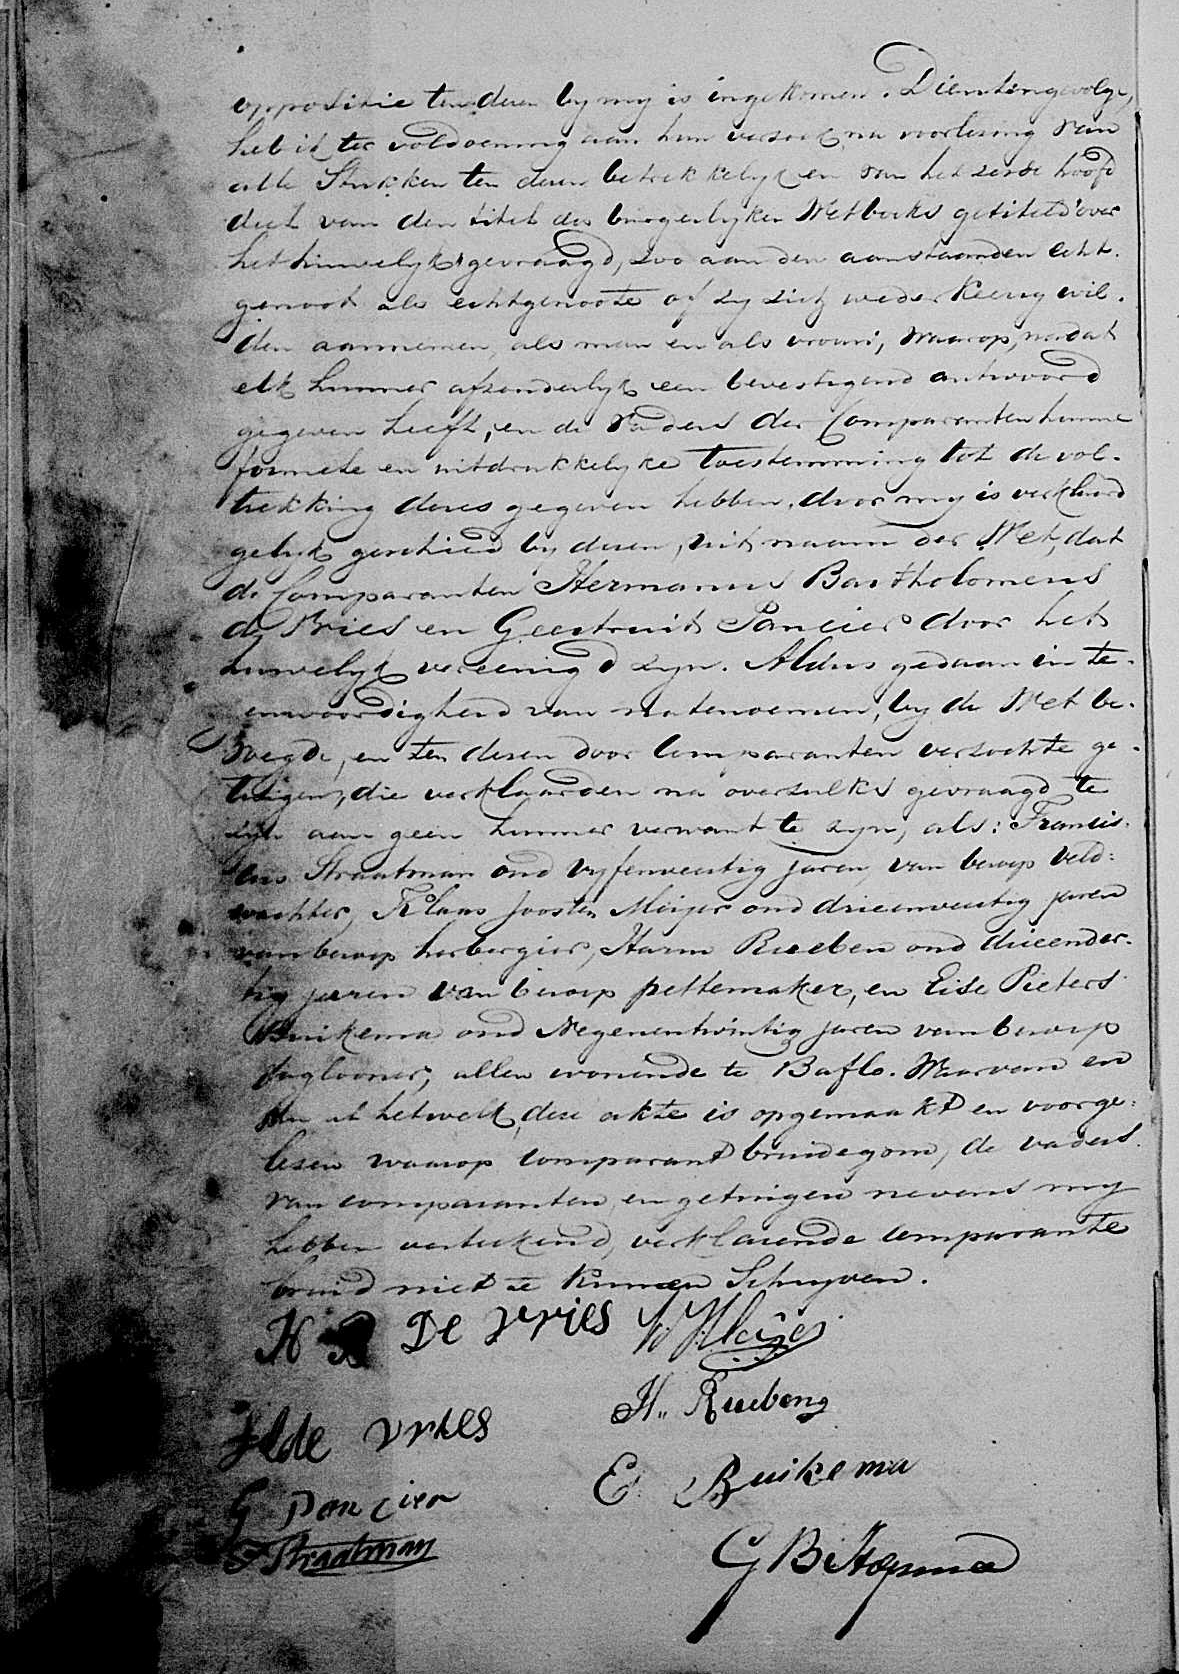 oppositie ten desen by my is ingekomen. Dientengevolge,
heb ik ter voldoening aan hun versoek, na voorlesing van
alle Stukken ten desen betrekkelyk en van het sesde hoofd
deel van den titel des burgerlyken Wetboeks getiteld over
het huwelyk, gevraagd, zoo aan den aanstaanden echt-
genoot als echtgenoote of zy zich wederkeerig wil-
den aannemen, als man en als vrouw, waarop, nadat
elk hunner afzonderlyk een bevestigend antwoord
gegeven heeft, en de Vaders der Comparanten hunne
formele en uitdrukkelyke toestemming tot de vol-
trekking deses gegeven hebben, door my is verklaard
gelyk geschied by desen, uit naam der Wet, dat
de Comparanten Hermannus Bartholomeus
de Vries en Geertruit Pancier door het
huwelyk vereenigd zyn. Aldus gedaan in te-
enwoordigheid van natenoemen, by de Wet be-
voegde, en ten desen door Comparanten versochte ge-
tuigen, die verklaarden na oversulks gevraagd te
zyn aan geen hunner verwant te zyn, als: Francis-
cus Straatman oud vyfenveertig jaren, van beroep veld-
wachter, Klaas Joosten Meijer oud drieenveertig jaren
van beroep herbergier, Harm Rieben oud drieender-
tig jaren van beroep pettemaker, en Eise Pieters
Buikema oud Negenentwintig jaren van beroep
daglooner, allen wonende te Baflo. Waarvan en
van al hetwelk, dese akte is opgemaakt en voorge-
lesen waarop comparant bruidegom, de vaders
van comparanten, en getuigen nevens my
hebben verteekend, verklarende comparante
bruid niet te kunnen Schryven.
H B De Vries K J Meijer
H. Ruebeng
de vries
E. Buikema
G Pancier
F Straatman
G B Hopma